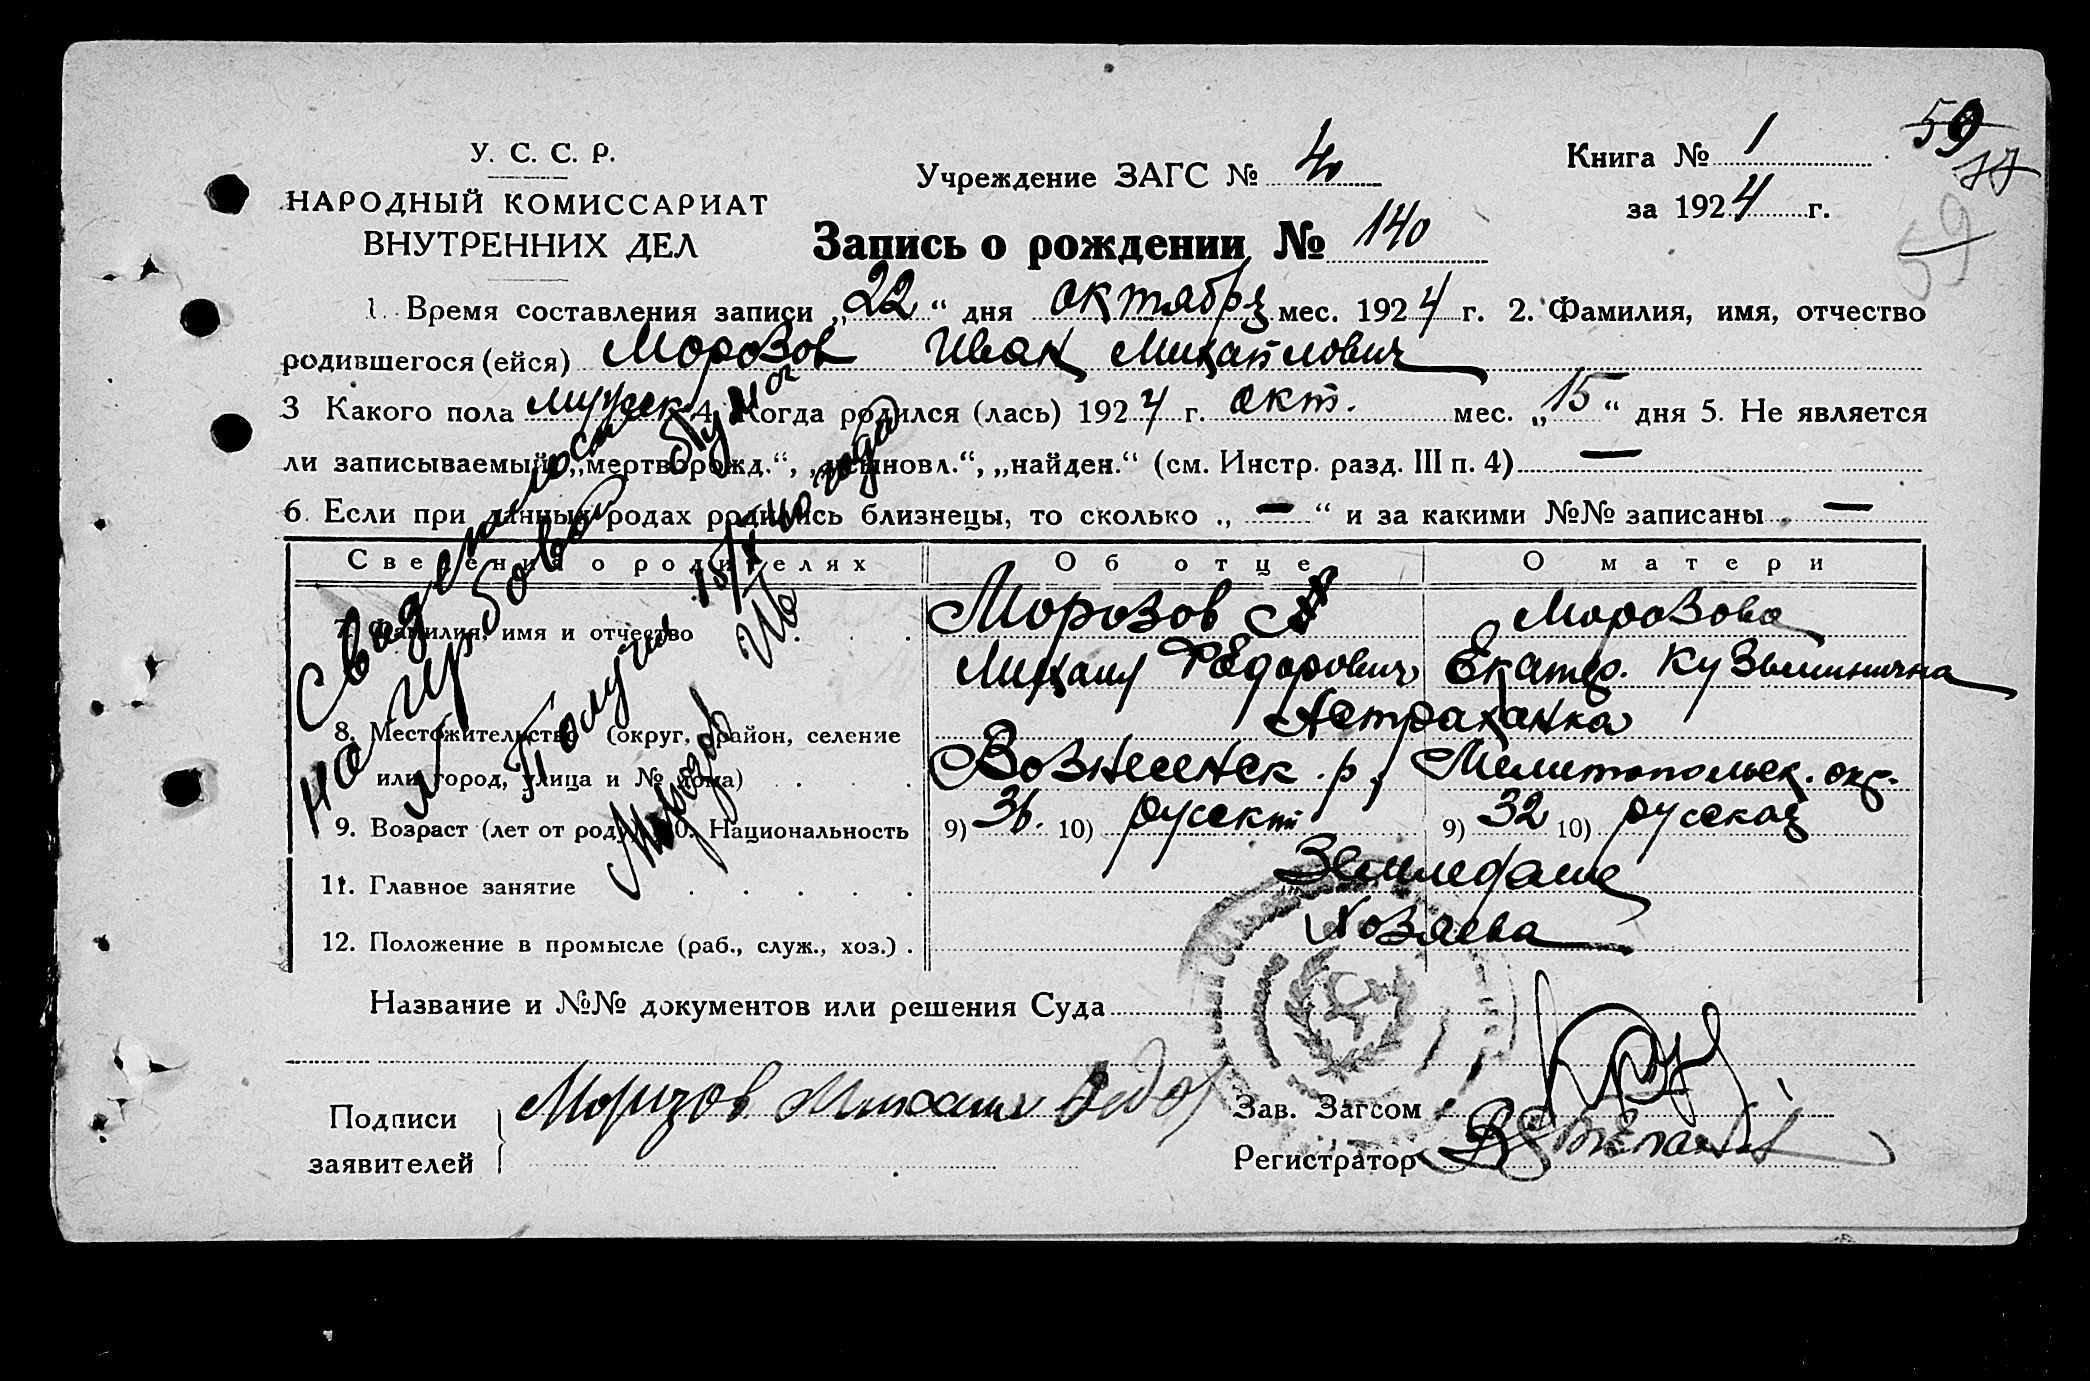 У. С. С. Р.
НАРОДНЫЙ КОМИССАРИАТ
ВНУТРЕННИХ ДЕЛ
Учреждение ЗАГС №
Книга № 1
за 1924 г.
59
59
Запись о рождении № 140
1. Время составления записи „22“ дня октября мес. 1924 г. 2. Фамилия, имя, отчество
родившегося (ейся) Морозов Иван Михайлович
3 Какого пола мужск. 4. Когда родился (лась) 1924 г. окт. мес. „15“ дня 5. Не является
ли записываемый „мертворожд.“, „усыновл.“, „найден.“ (см. Инстр. разд. III п. 4) —
6. Если при данных родах родились близнецы, то сколько „ — “ и за какими №№ записаны —
Сведения о родителях Об отце О матери
7. Фамилия, имя и отчество Морозов Морозова
Михаил Фёдорович Екатер. Кузьминична
Астраханка
8. Местожительство (округ, район, селение
или город, улица и № дома) Вознесенск. р., Мелитопольск. окр.
9. Возраст (лет от роду) 10. Национальность 9) 36. 10) русский 9) 32 10) русская
11. Главное занятие Земледелие
12. Положение в промысле (раб., служ., хоз.) Хозяева
Свидетельство
на гербовой бумаге
Получил 15/X
Морозов
Название и №№ документов или решения Суда
Подписи
заявителей
Морозов Михаил Федор
Зав. Загсом
Регистратор